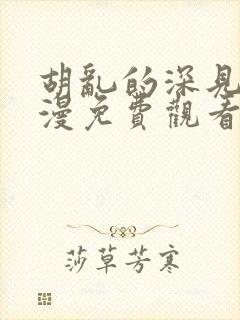 胡亂的深見
漫免費觀看
莎草芳寒